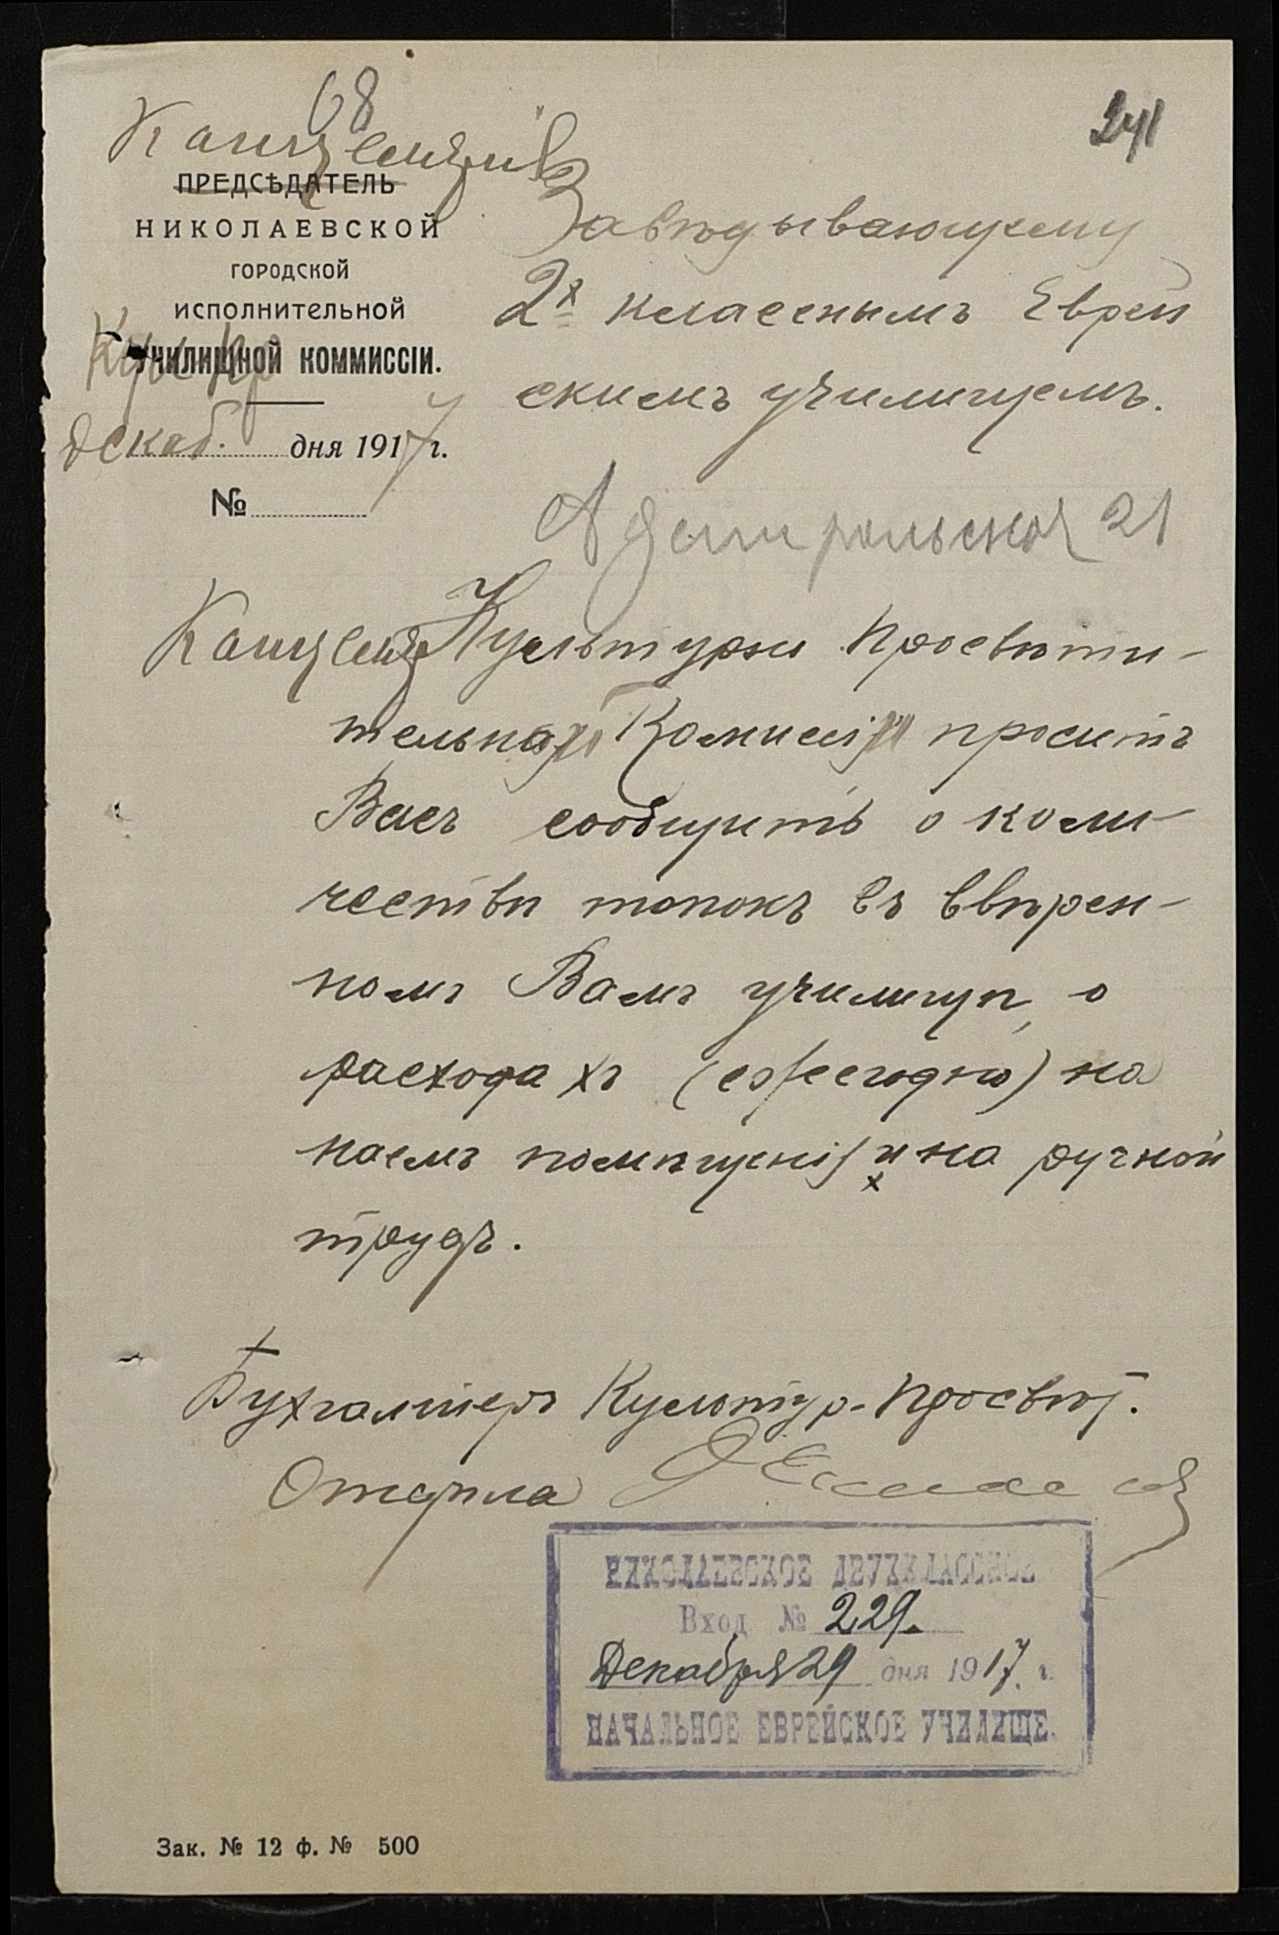 68
241
Канцелярія
ПРЕДСѢДАТЕЛЬ
НИКОЛАЕВСКОЙ
ГОРОДСКОЙ
ИСПОЛНИТЕЛЬНОЙ
УЧИЛИЩНОЙ КОММИССІИ.
Декаб. дня 1917 г.
№
Завѣдывающему
2х классным Еврей
скимъ училищемъ.
Адмиральская 21
Канцеля Культурно Просвѣти-
тельной Комиссіи проситъ
Васъ сообщить о коли-
чествѣ топокъ въ ввѣрен-
номъ Вамъ училищѣ, о
расходахъ (ежегодно) на
наемъ помѣщенія и на ручной
трудъ.
Бухгалтеръ Культур-Просвѣт.
Отдѣла
НИКОЛАЕВСКОЕ ДВУХКЛАССНОЕ
Вход № 229.
Декабря 29 дня 1917 г.
НАЧАЛЬНОЕ ЕВРЕЙСКОЕ УЧИЛИЩЕ.
Зак. № 12 ф. № 500